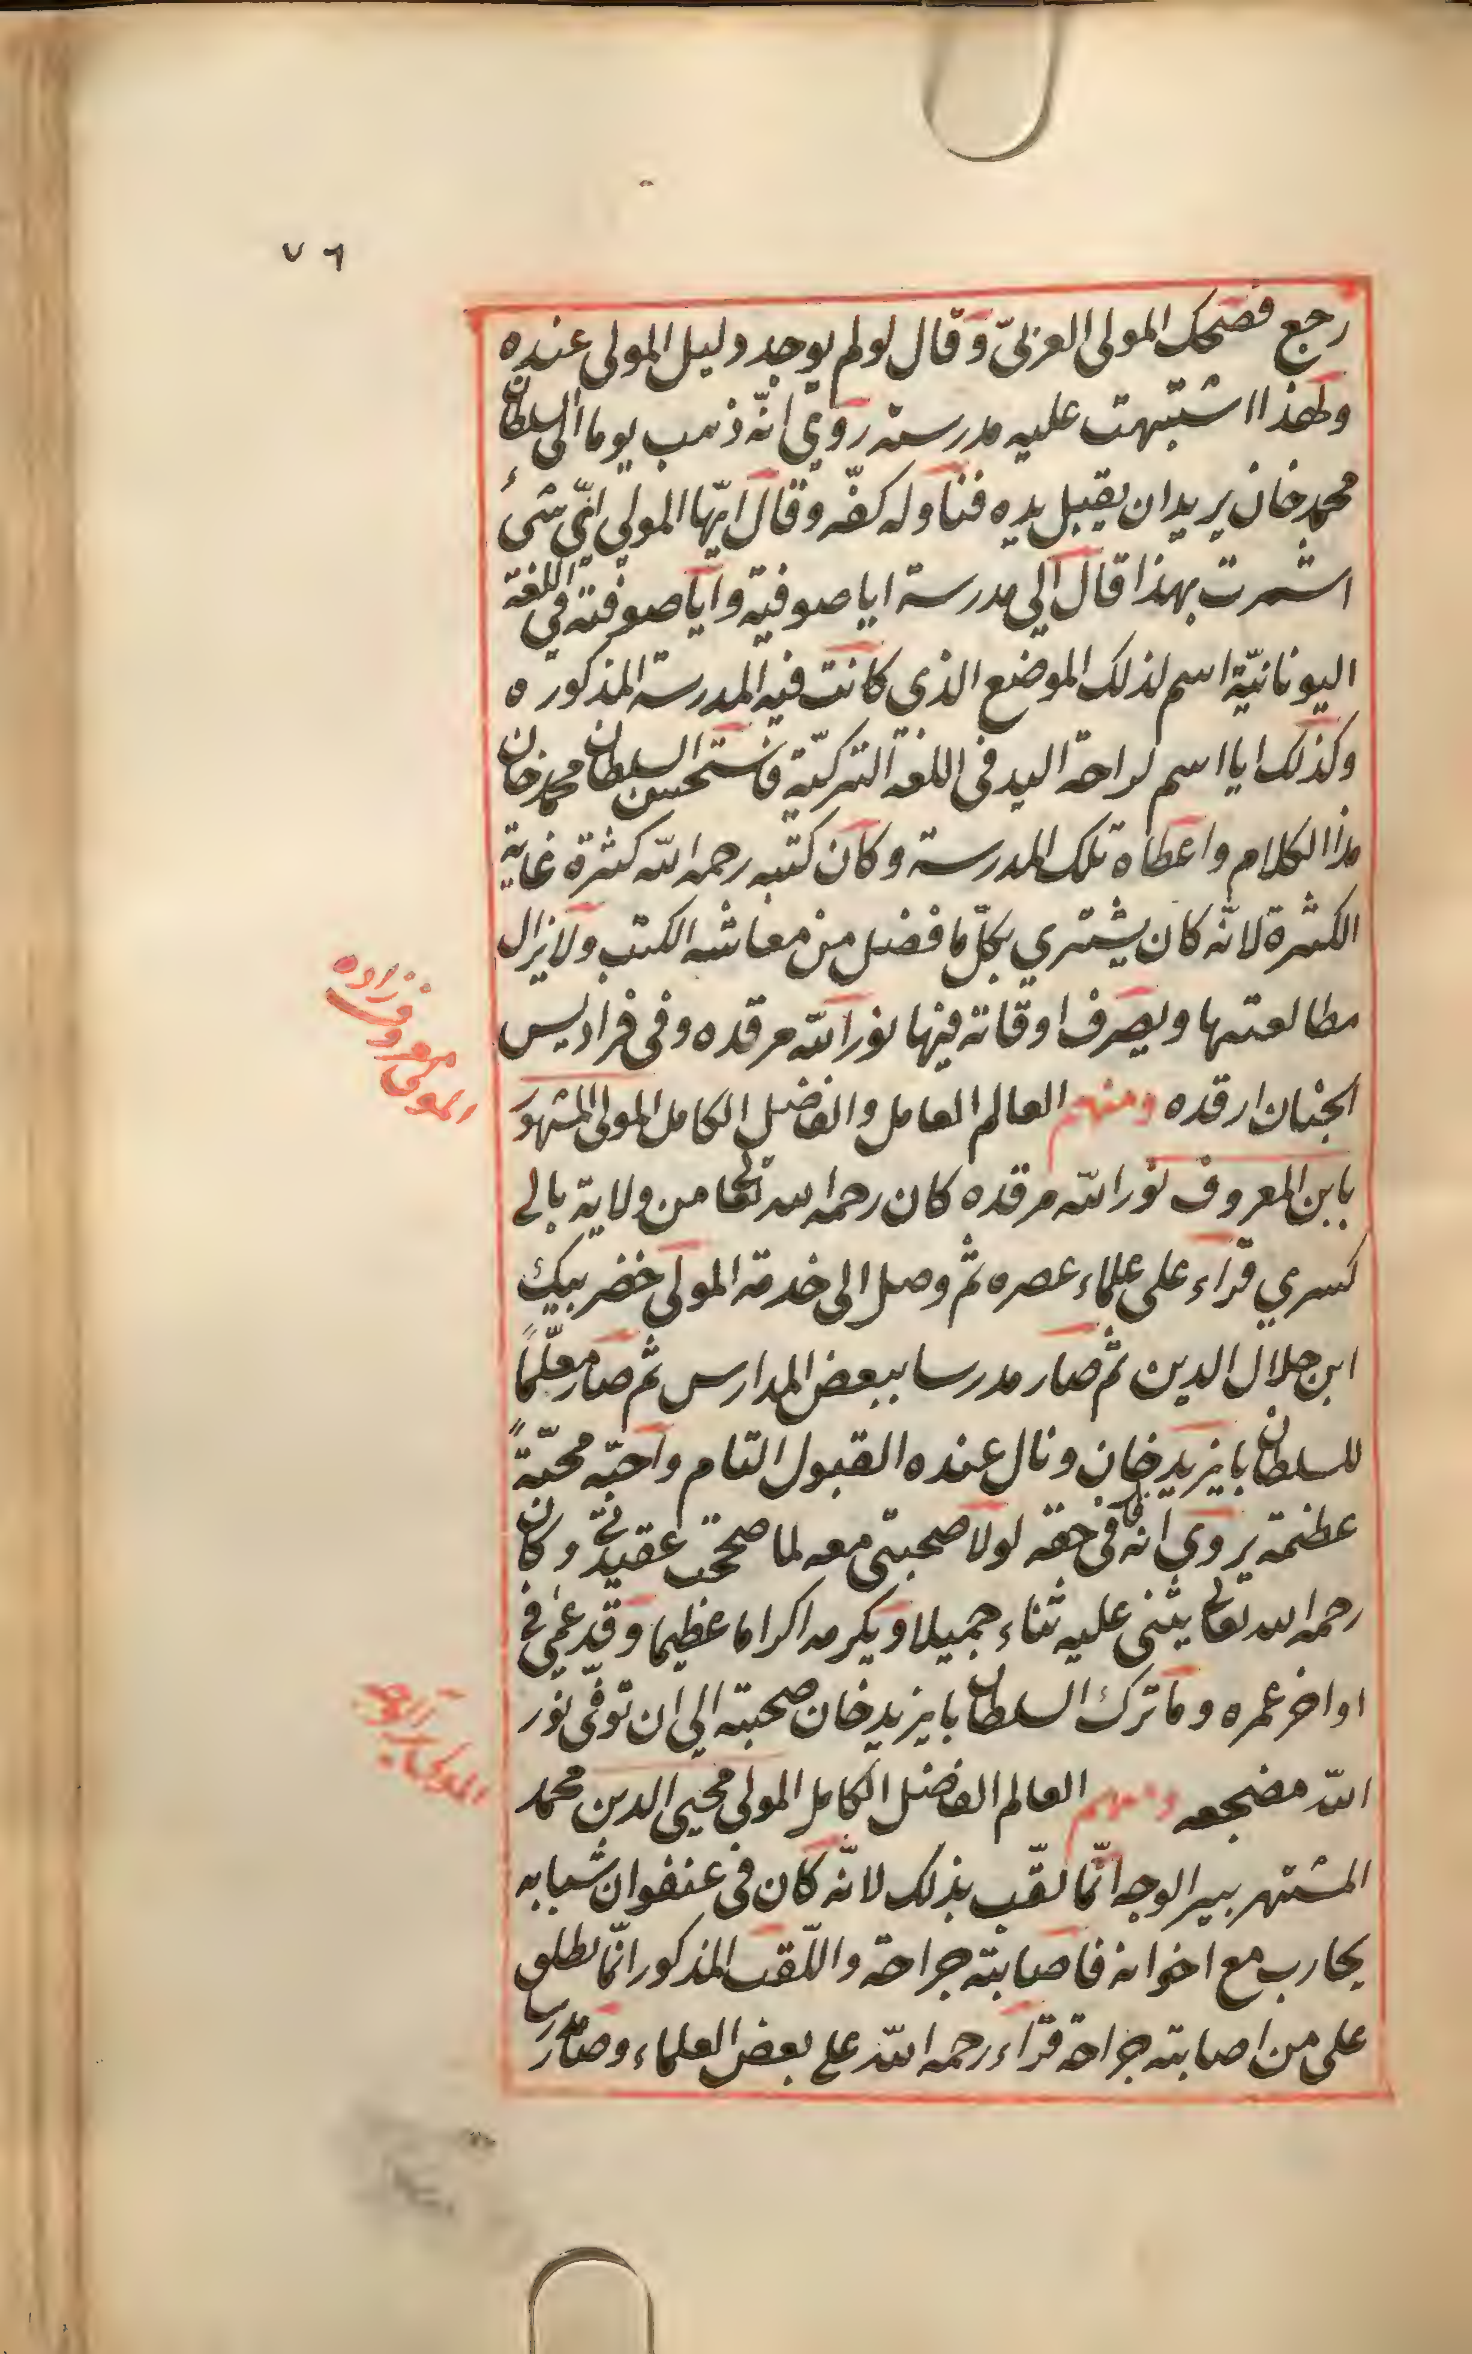 ٧٦
رجع فضحك المولى العزلىّ وقال لولم يوجد دليل المولى عنده
ولهذا اشتبهت عليه مدرسته روي انّه ذهب يوما الى السلطان
محمد خان يريد ان يقبل يده فناوله كفّه وقال ايّها المولى ايّ شئ
اشرت بهذا قال الي مدرسة ايا صوفية وايا صوفية في اللغة
اليونانيّة اسم لذلك الموضع الذى كانت فيه المدرسة المذكوره
وكذلك ايا اسم لراحة اليد فى اللغة التركيّة فاستحسن السلطان محمد خان
هذا الكلام واعطاه تلك المدرسة وكان كتبه رحمه الله كثرة غاية
الكثرة لانّه كان يشتري بكلّ ما فضل من معاشه الكتب ولا يزال
مطالعتها ويصرف اوقاته فيها نور الله مرقده وفى فراديس
الجنان ارقده ومنهم العالم العامل والفاضل الكامل المولى المشهور
بابن المعروف نور الله مرقده كان رحمه الله تعالى من ولاية بالي
كسري قراء على علماء عصره ثم وصل الى خدمة المولى خضر بيك
ابن جلال الدين ثم صار مدرسا ببعض المدارس ثم صار معلّماً
للسلطان بايزيد خان ونال عنده القبول التام واحبّه محبّةً
عظيمة يروى انه قال فى حقه لولا صحبتى معه لما صححت عقيدتى وكان
رحمه الله تعالى يثنى عليه ثناء جميلا ويكرمه اكراما عظيما وقد عمي في
اواخر عمره وما ترك السلطان بايزيد خان صحبته الي ان توفّى نور
الله مضجعه ومنهم العالم الفاضل الكامل المولى محيى الدين محمد
المشتهر ببير الوجه انّما لقّب بذلك لانّه كان فى عنفوان شبابه
يحارب مع اخوانه فاصابته جراحة واللّقب المذكور انّما يطلق
على من اصابته جراحة قراء رحمه الله على بعض العلماء وصار مدرسا
المولى معروف زاده
المولى الوجه